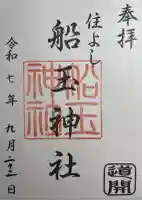 奉拝
住よし
船玉神社
令和七年 九月二十二日
船玉神社
道開